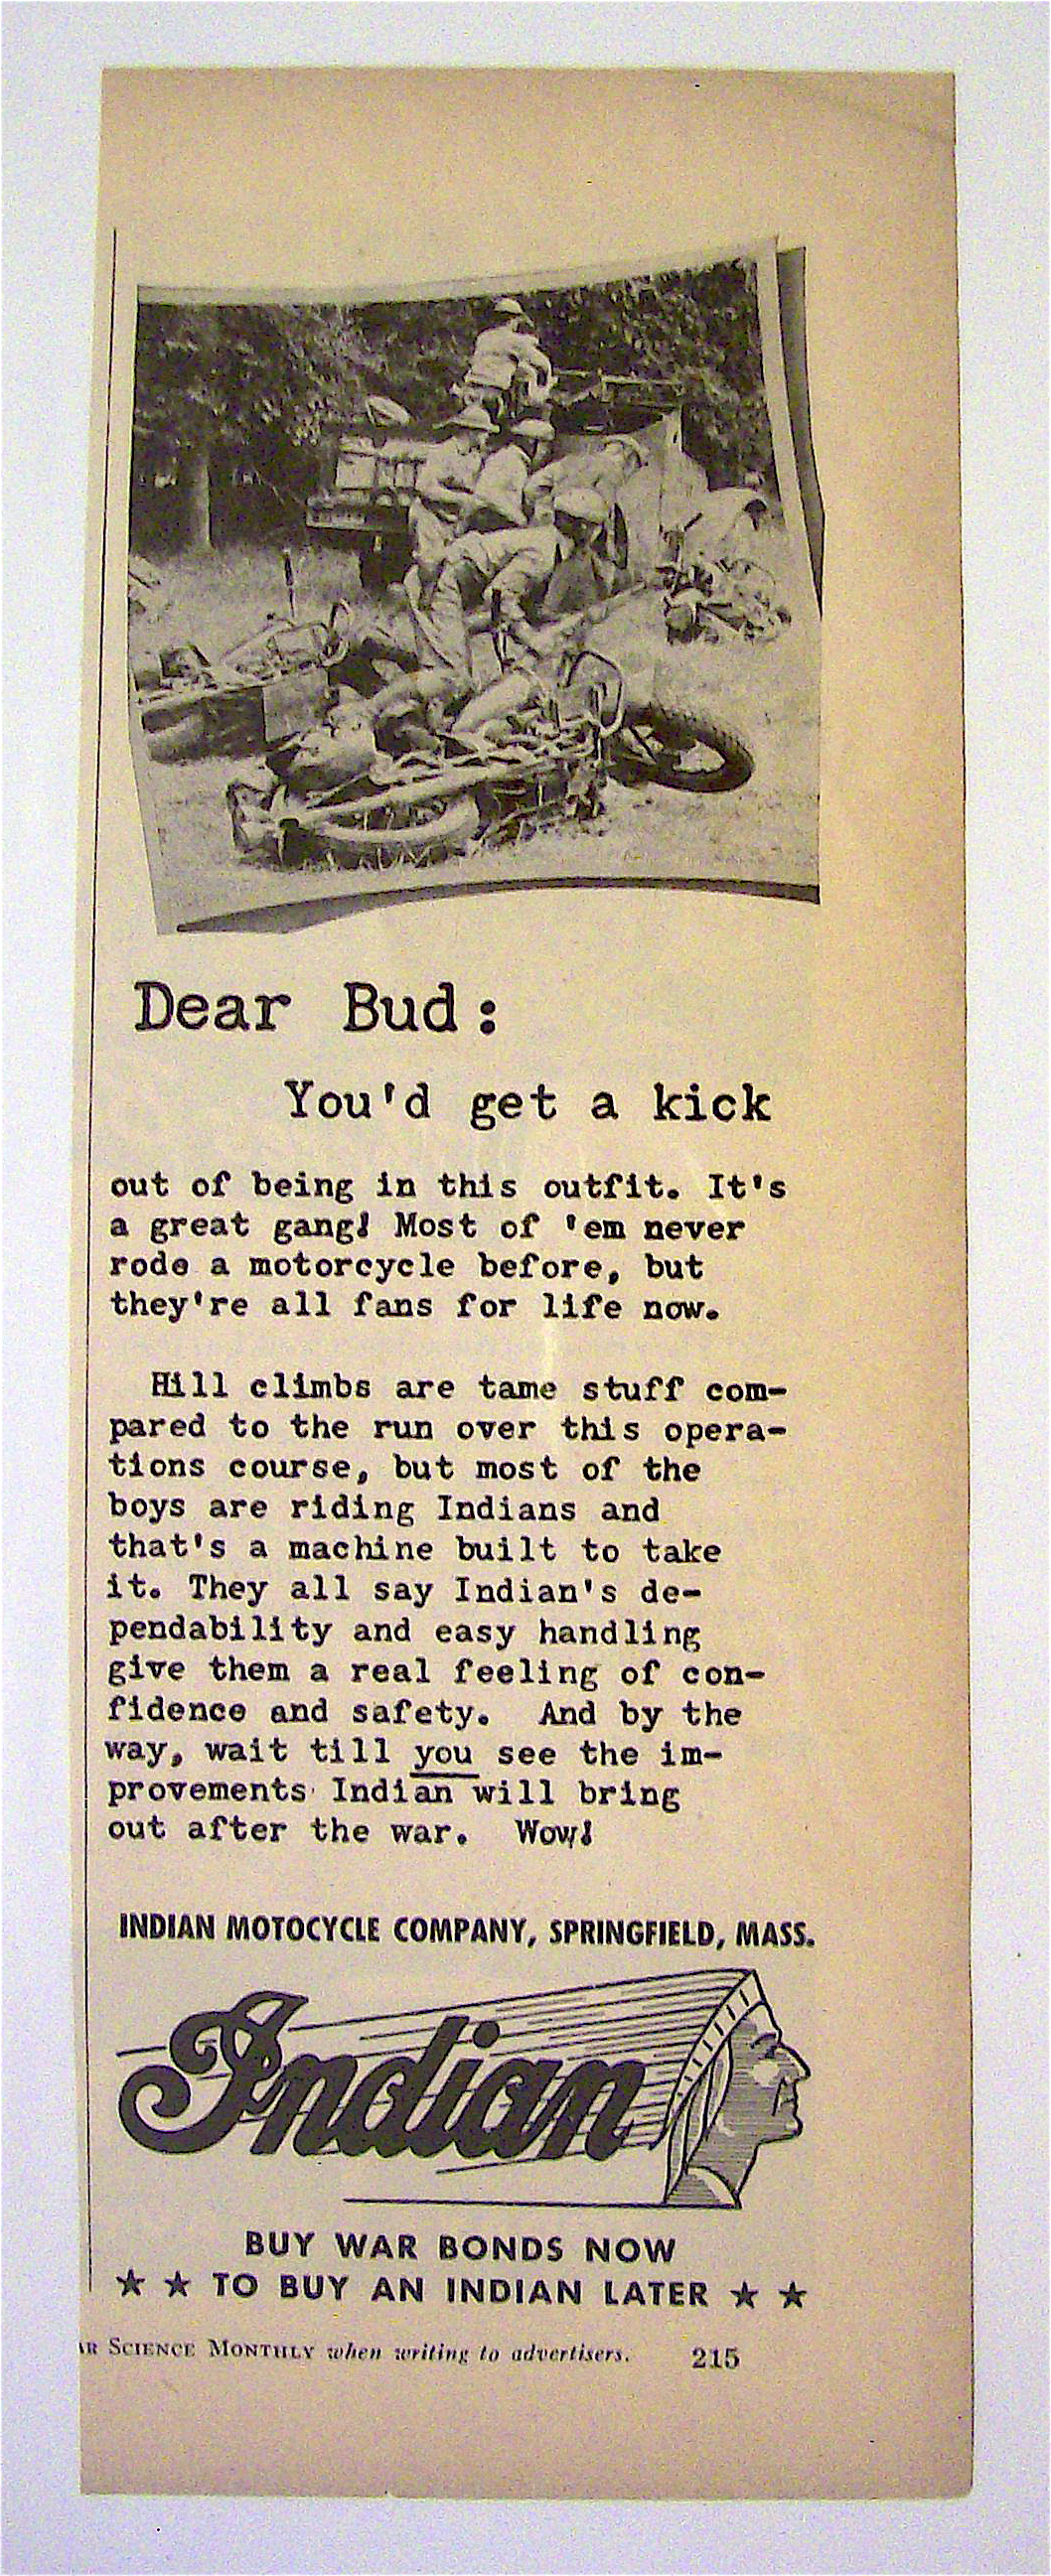 Dear Bud:
You'd get a kick
out of being in this outfit. It's
a great gang! Most of 'em never
rode a motorcycle before, but
they're all fans for life now.
Hill climbs are tame stuff com-
pared to the run over this opera-
tions course, but most of the
boys are riding Indians and
that's a machine built to take
it. They all say Indian's de-
pendability and easy handling
give them a real feeling of con-
fidence and safety. And by the
way, wait till you see the im-
provements Indian will bring
out after the war. Wow!
INDIAN MOTOCYCLE COMPANY, SPRINGFIELD, MASS.
Indian
BUY WAR BONDS NOW
★ ★ TO BUY AN INDIAN LATER ★ ★
AR SCIENCE MONTHLY when writing to advertisers. 215